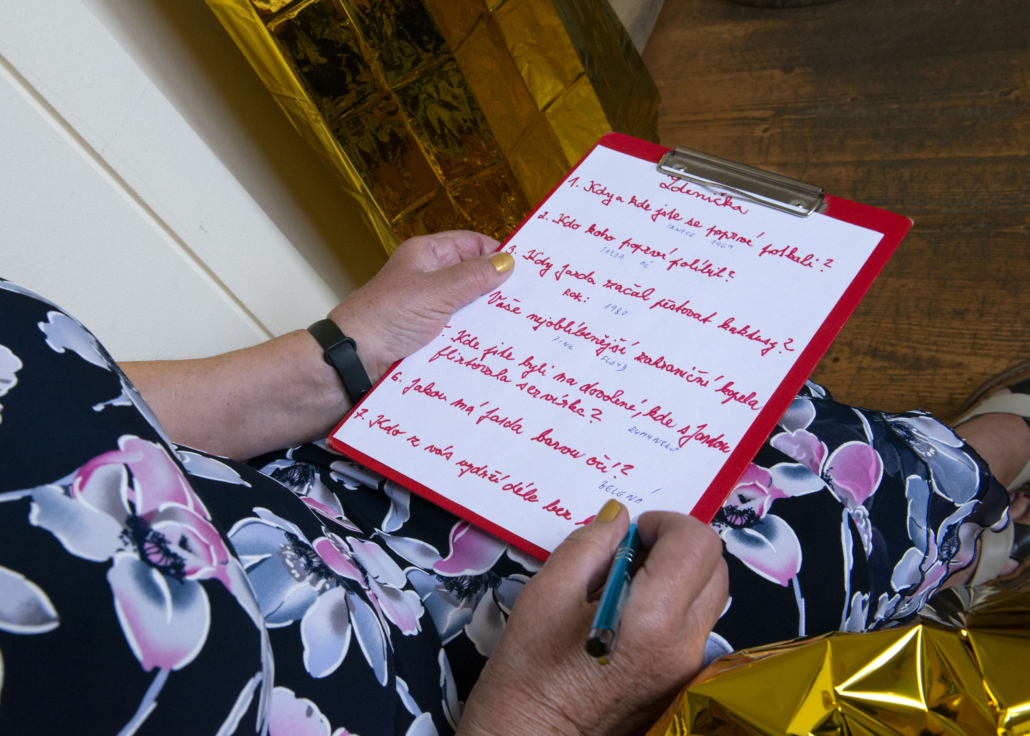 Zdenička
1. Kdy a kde jste se poprvé potkali?
1969
2. Kdo koho poprvé políbil?
JARDA MĚ
3. Kdy Jarda začal pěstovat kaktusy?
Rok: 1980
Vaše nejoblíbenější zahraniční kapela
PINK FLOYD
Kde jste byli na dovolené, kde s Jardou
flirtovala servírka?
RUMUNSKO
6. Jakou má Jarda barvou očí?
ZELENÁ
7. Kdo z vás vydrží déle bez